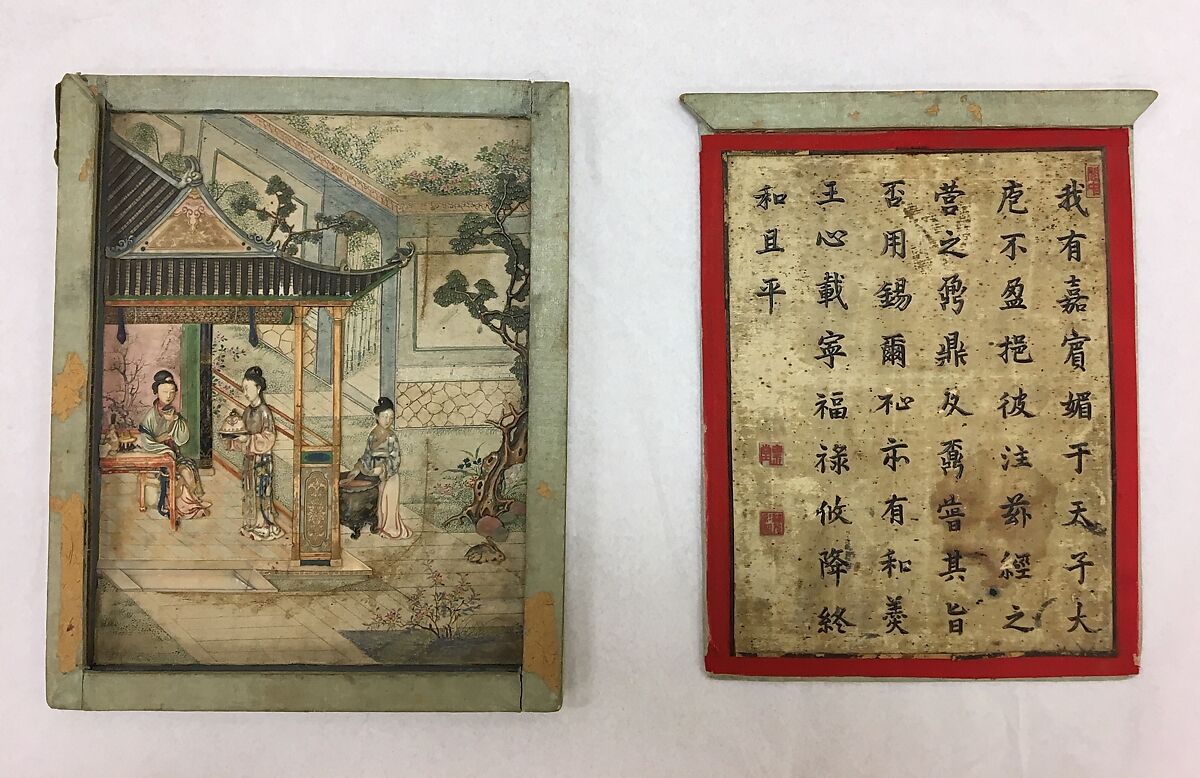 我有嘉賓媚于天子大
庖不盈挹彼注茲經之
營之鼐鼎及鼒嘗其旨
否用錫爾祉亦有和羹
王心載寧福祿攸降終
和且平